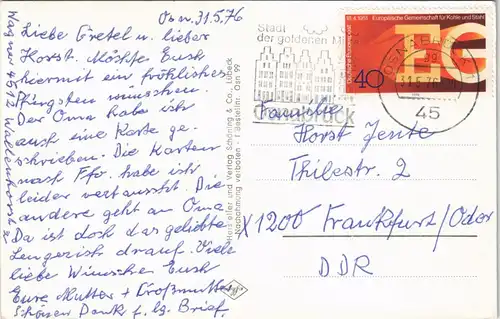 Osn. 31.5.76
Liebe Gretel u. lieber
Horst. Möchte Euch
hiermit ein fröhliches
Pfingsten wünschen.
Der Oma habe ich
auch eine Karte ge-
schrieben. Die Karten
nach Ffo. habe ich
leider vertauscht. Die
andere geht an Oma
Da ist doch das geliebte
Lengerich drauf. Viele
liebe Wünsche Euch
Eure Mutter + Großmutter
Schönen Dank f. lg. Brief.
Wagner 4512 Wallenhorst 2
Hersteller und Verlag Schöning & Co., Lübeck
Nachdruck verboten
Osn 99
Stadt
der goldenen
Osnabrück
18.4.1951 Europäische Gemeinschaft für Kohle und Stahl
Deutsche Bundespost
40
OSNABRÜCK 1
31.5.76
45
Familie
Horst Jente
Thilestr. 2
X1200 Frankfurt/Oder
DDR